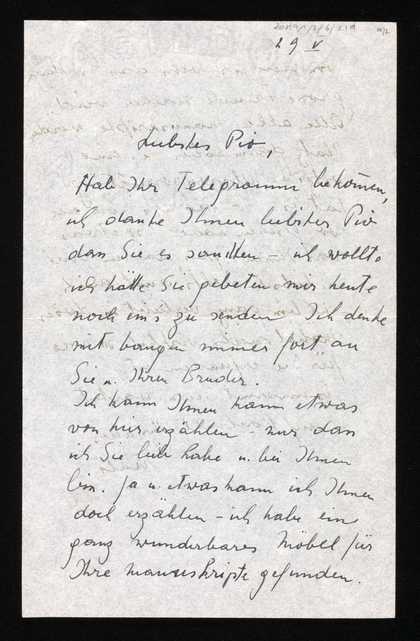 29 V
Liebstes Pio,
Hab Ihr Telegramm bekomen,
ich danke Ihnen liebstes Pio
dass Sie es sandten – ich wollte
ich hätte Sie gebeten mir heute
noch eins zu senden. Ich denke
mit bangen immer fort an
Sie u. Ihren Bruder.
Ich kann Ihnen kaum etwas
von hier erzählen – nur dass
ich Sie lieb habe u. bei Ihnen
bin. Ja u. etwas kann ich Ihnen
doch erzählen – ich habe ein
ganz wunderbares Möbel für
Ihre Manuskripte gefunden.